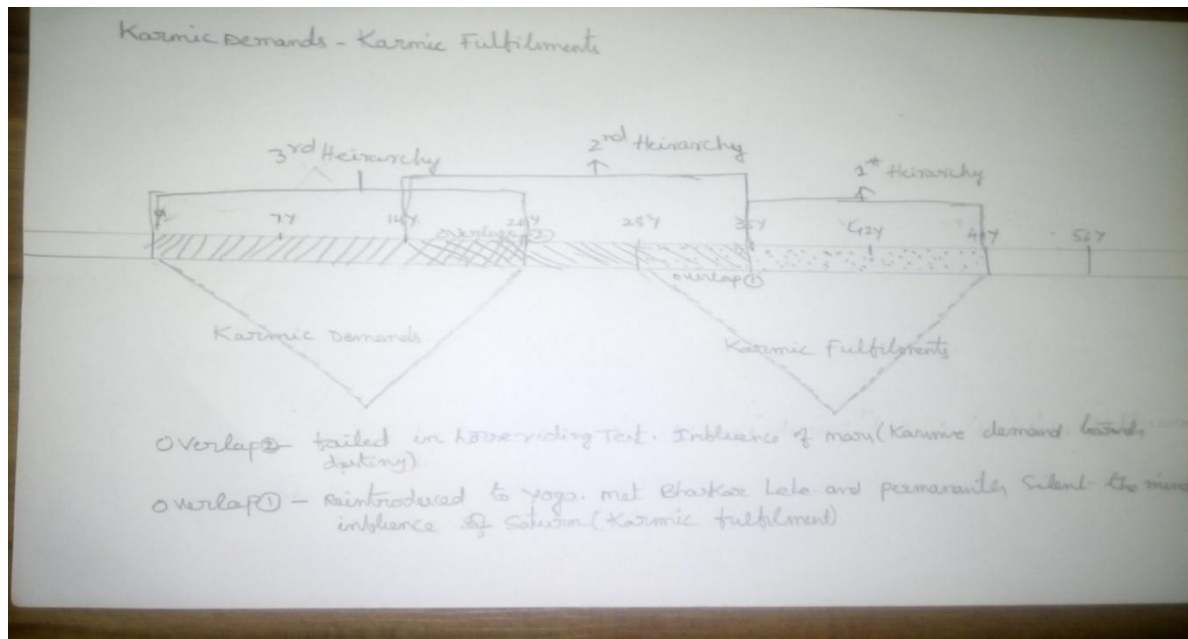 Karmic Demands - Karmic Fulfilments
3rd Heirarchy
2rd Heirarchy
1st Heirarchy
7Y
14Y
21Y
28Y
35Y
42Y
49Y
56Y
overlap②
overlap①
Karmic Demands
Karmic Fulfilments
Overlap② - failed in horse riding Test. Influence of mars (Karmic demand towards
destiny)
Overlap① - Reintroduced to yoga. met Bhaskar Lele and permanantly Silent the mind
influence of Saturn (Karmic fulfilment)